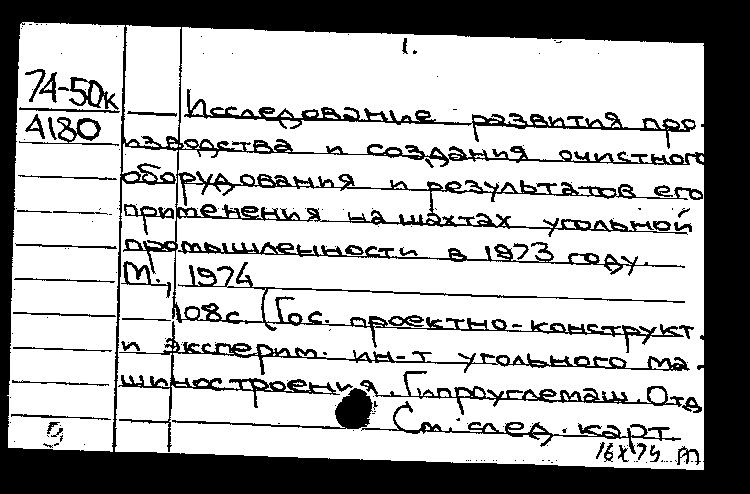 1.
74-50к
4180
Исследование развития про-
изводства и создания очистного
оборудования и результатов его
применения на шахтах угольной
промышленности в 1973 году.
М., 1974
108с. (Гос. проектно-конструкт.
и эксперим. ин-т угольного ма-
шиностроения. Гипроуглемаш. Отд
См. след. карт.
9
16 X 74 м